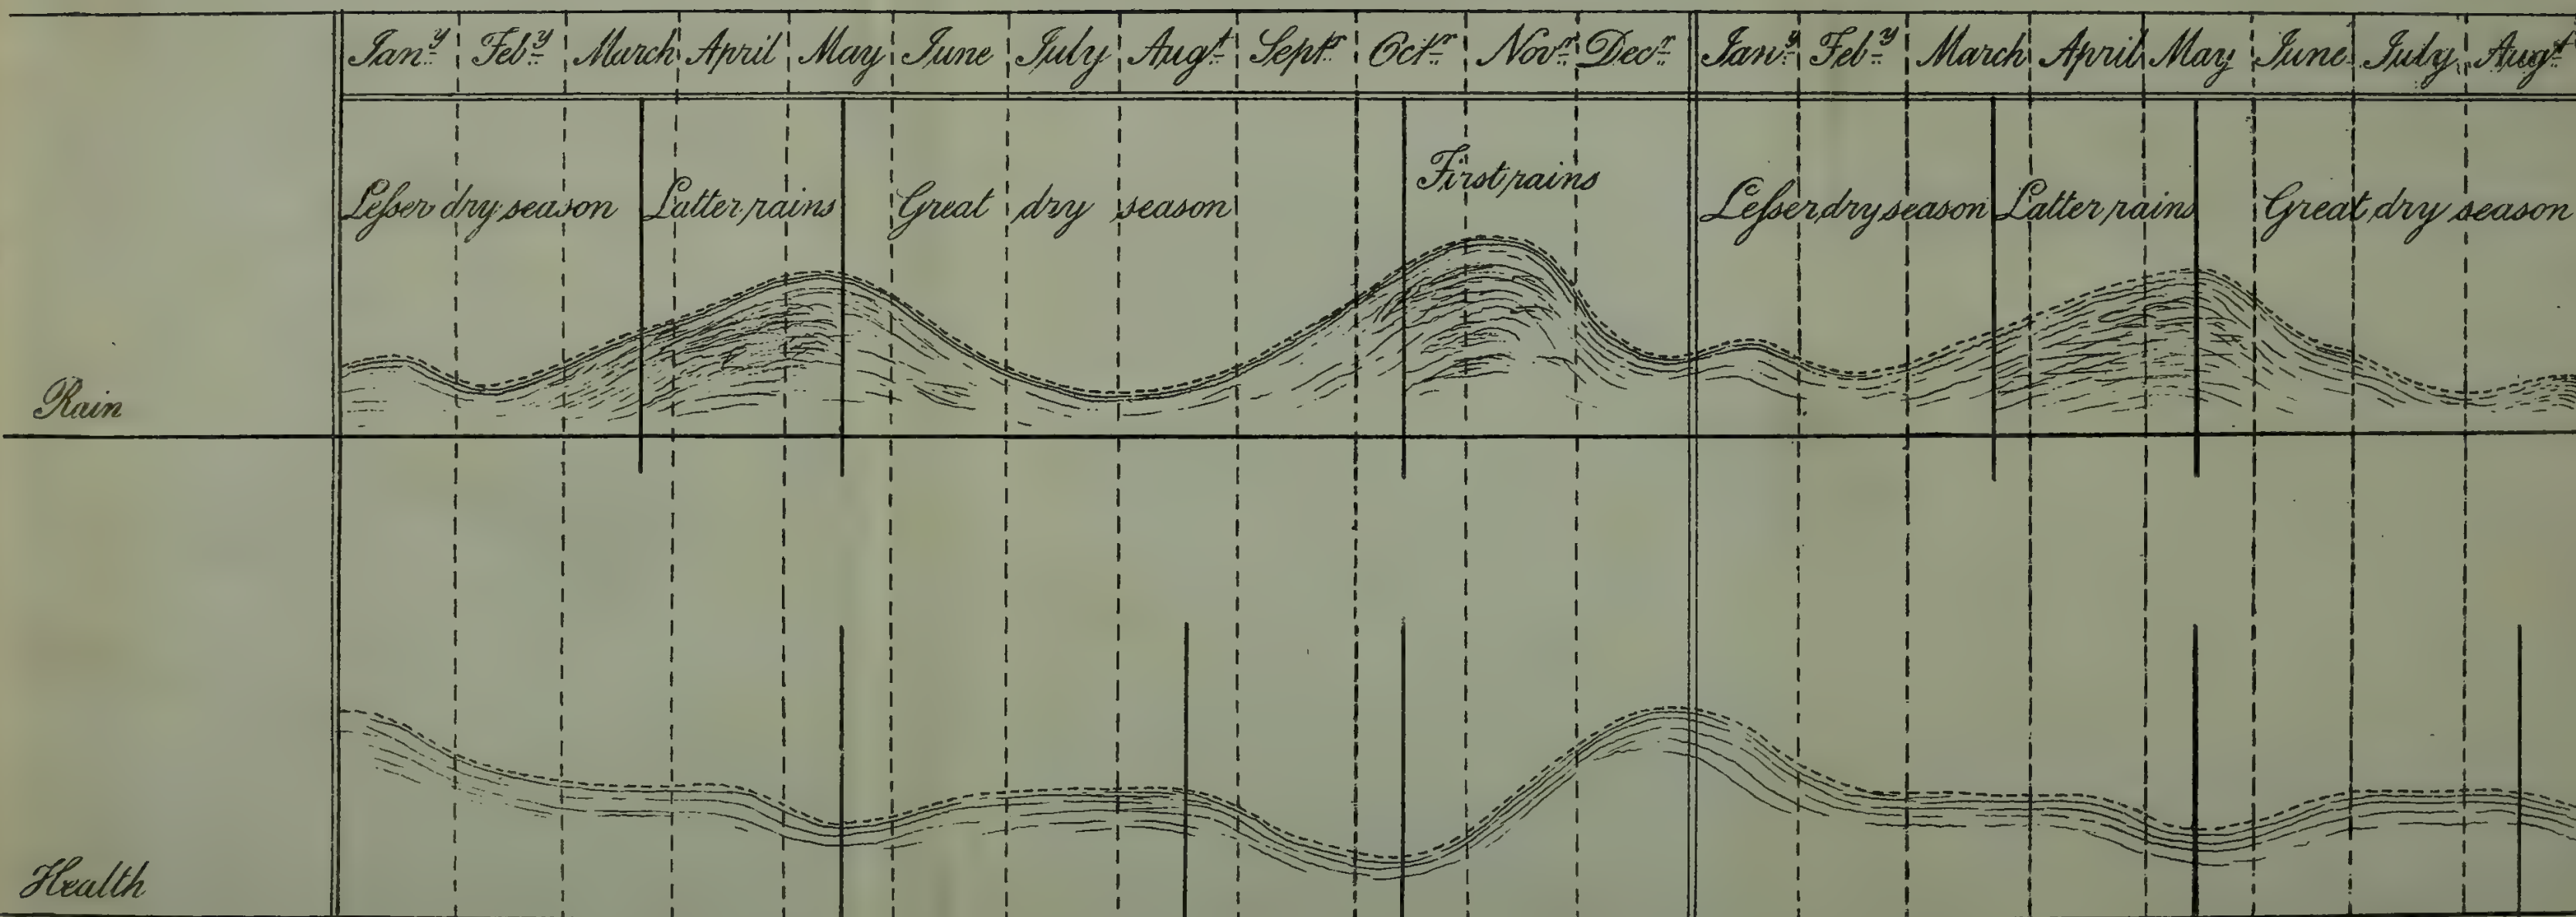 Janʸ Febʸ March April May June July Augᵗ Septʳ Octʳ Novʳ Decʳ Janʸ Febʸ March April May June July Augᵗ
First rains
Leſser dry season Latter rains Great dry season Leſser dry season Latter rains Great dry season
Rain
Health